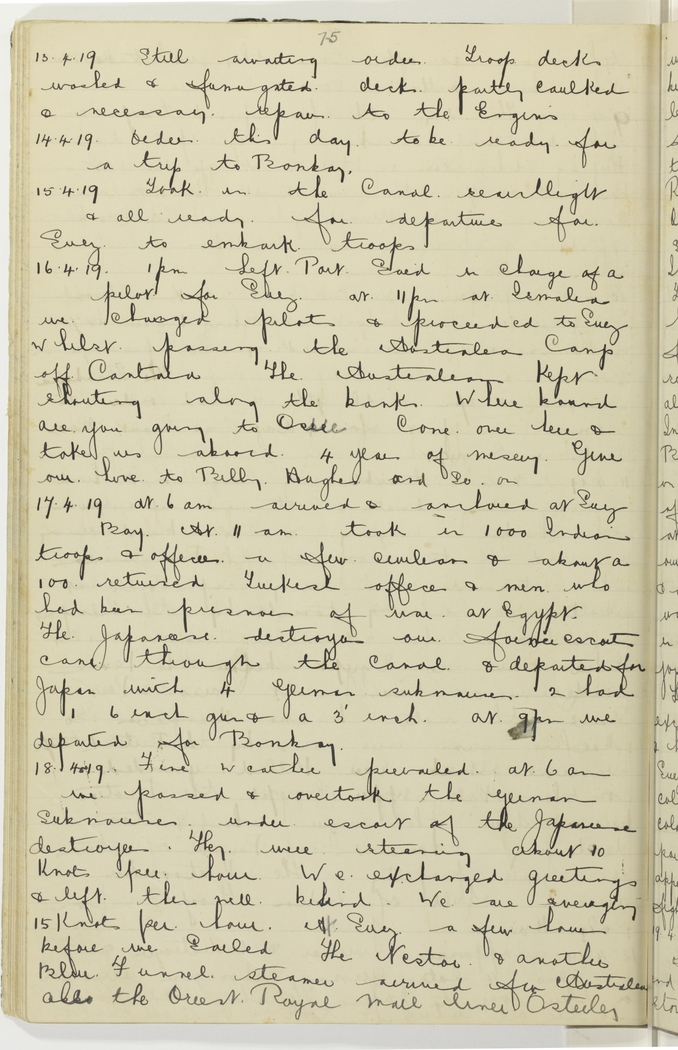 75
13.4.19 Still awaiting orders. Troop decks
washed & fumugated. decks partly caulked
& necessary. repairs to the Engins
14.4.19. Orders this day. to be ready for
a trip to Bombay.
15.4.19 Took in the Canal. searchlight
& all ready. for departure for.
Suez. to embark troops
16.4.19. 1pm Left. Port. Said in charge of a
pilot for Suez. at. 11pm at Ismalia
we. changed pilots & proceeded to Suez
whilst. passing the Australian Camp
off Cantara The Australians Kept
shouting along the banks. Where bound
are you going to Come. over here &
take us aboard. 4 years of misery. Give
our. love. to Billy. Hughes and Co. on
17.4.19 at 6 am arrived & anchored at Suez
Bay. At. 11 am. took in 1000 Indian
troops & officers. a few civilians & about a
100. returned Turkish officers & men. who
had been prisnors of war. at Egypt.
The. Japanese. destroyer our. escort
came through the canal. & departed for
Japan with 4 German submarines. 2 had
1 6 inch gun & a 3' inch. at 9pm we
departed for Bombay.
18.4.19. Fine weather prevailed. at 6 am
we passed & overtook the German
Submarines. under escort of the Japanese
destroyer. They. were. steaming about 10
Knots per. hour. We. exchanged greetings
& left. them well behind. We are averaging
15 Knots per. hour. At Suez a few hours
before we Sailed The Nestor. & another
Blue. Funnel. steamer arrived for Australians
also the Orient. Royal mail liner Osterley